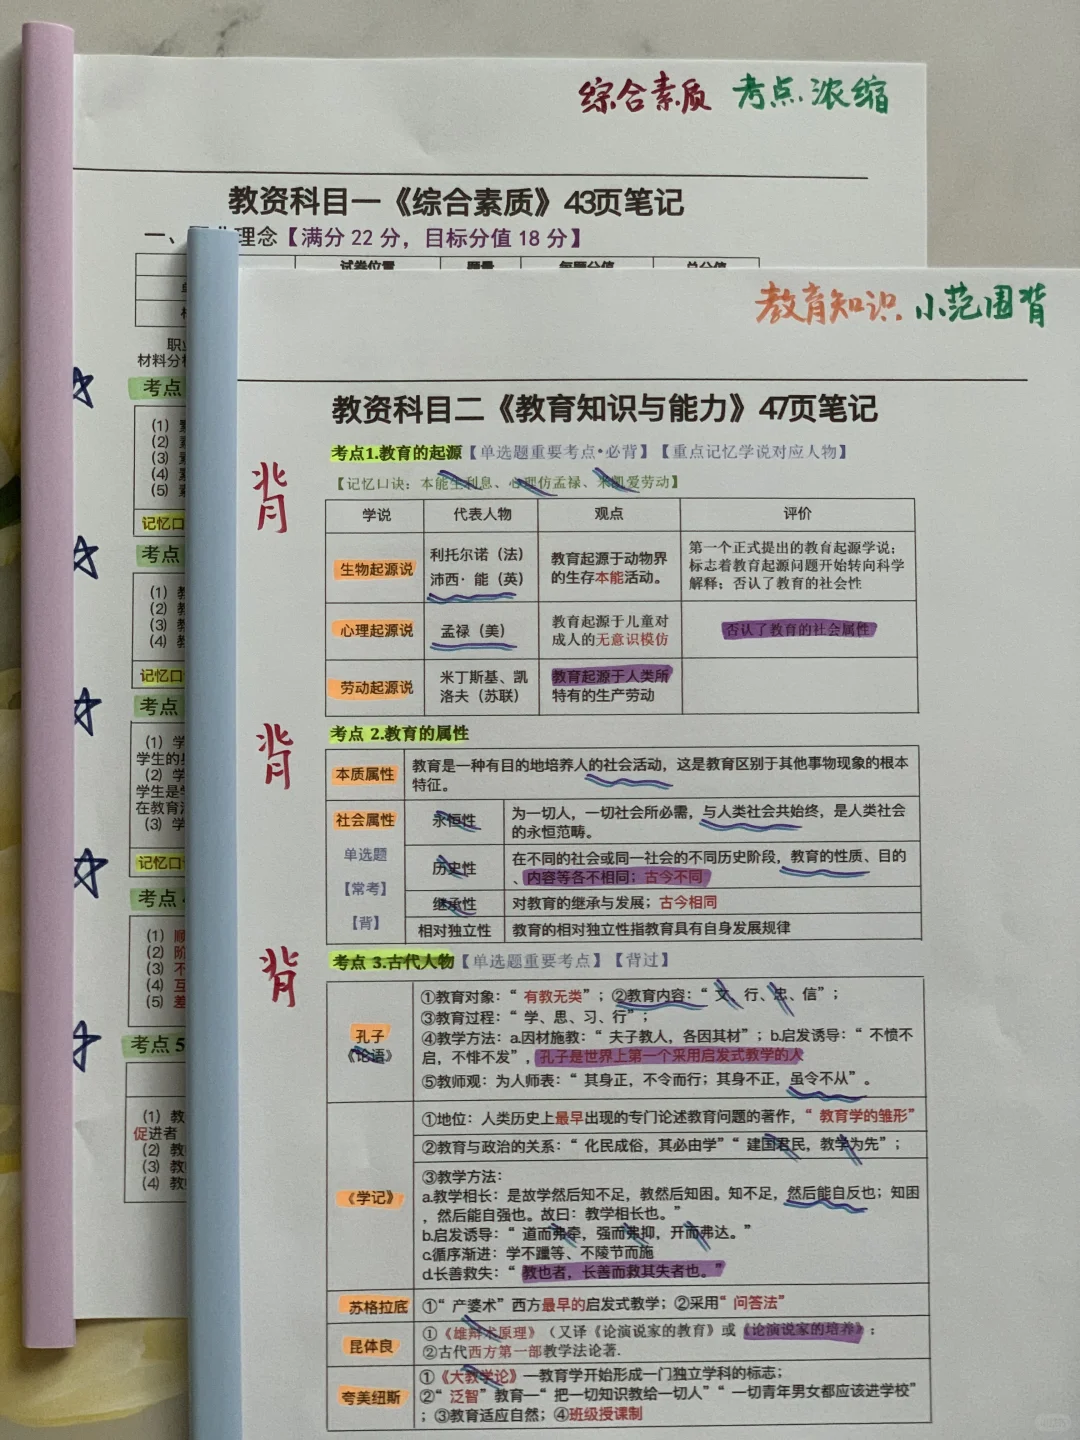 综合素质 考点浓缩
教资科目一《综合素质》43页笔记
一、 理念【满分 22 分，目标分值 18 分】
试卷位置 题量 每题分值 总分值
职业
材料分析
考点
(1)
(2)
(3)
(4)
(5)
记忆口
考点
(1) 教
(2)
(3)
(4)
记忆口
考点
(1) 学
学生的
(2) 学
学生是
在教育
(3) 学
记忆口
考点
(1) 顺
(2) 阶
(3) 不
(4) 互
(5) 差
考点 5
(1) 教
促进者
(2) 教
(3) 教
(4) 教
教育知识 小范围背
教资科目二《教育知识与能力》47页笔记
考点1.教育的起源【单选题重要考点•必背】【重点记忆学说对应人物】
背
【记忆口诀：本能生利息、心理仿孟禄、米凯爱劳动】
学说 代表人物 观点 评价
生物起源说
利托尔诺（法）
沛西·能（英）
教育起源于动物界
的生存本能活动。
第一个正式提出的教育起源学说；
标志着教育起源问题开始转向科学
解释；否认了教育的社会性
心理起源说
孟禄（美）
教育起源于儿童对
成人的无意识模仿
否认了教育的社会属性
劳动起源说
米丁斯基、凯
洛夫（苏联）
教育起源于人类所
特有的生产劳动
背
考点 2.教育的属性
本质属性
教育是一种有目的地培养人的社会活动，这是教育区别于其他事物现象的根本
特征。
社会属性
单选题
【常考】
【背】
永恒性
为一切人，一切社会所必需，与人类社会共始终，是人类社会
的永恒范畴。
历史性
在不同的社会或同一社会的不同历史阶段，教育的性质、目的
、内容等各不相同；古今不同
继承性
对教育的继承与发展；古今相同
相对独立性
教育的相对独立性指教育具有自身发展规律
背
考点 3.古代人物【单选题重要考点】【背过】
孔子
《论语》
①教育对象：“有教无类”；②教育内容：“文、行、忠、信”；
③教育过程：“学、思、习、行”；
④教学方法：a.因材施教：“夫子教人，各因其材”；b.启发诱导：“不愤不
启，不悱不发”，孔子是世界上第一个采用启发式教学的人
⑤教师观：为人师表：“其身正，不令而行；其身不正，虽令不从”。
《学记》
①地位：人类历史上最早出现的专门论述教育问题的著作，“教育学的雏形”
②教育与政治的关系：“化民成俗，其必由学”“建国君民，教学为先”；
③教学方法：
a.教学相长：是故学然后知不足，教然后知困。知不足，然后能自反也；知困
，然后能自强也。故曰：教学相长也。”
b.启发诱导：“道而弗牵，强而弗抑，开而弗达。”
c.循序渐进：学不躐等、不陵节而施
d.长善救失：“教也者，长善而救其失者也。”
苏格拉底
①“产婆术”西方最早的启发式教学；②采用“问答法”
昆体良
①《雄辩术原理》（又译《论演说家的教育》或《论演说家的培养》；
②古代西方第一部教学法论著.
夸美纽斯
①《大教学论》—教育学开始形成一门独立学科的标志；
②“泛智”教育—“把一切知识教给一切人”“一切青年男女都应该进学校”
；③教育适应自然；④班级授课制